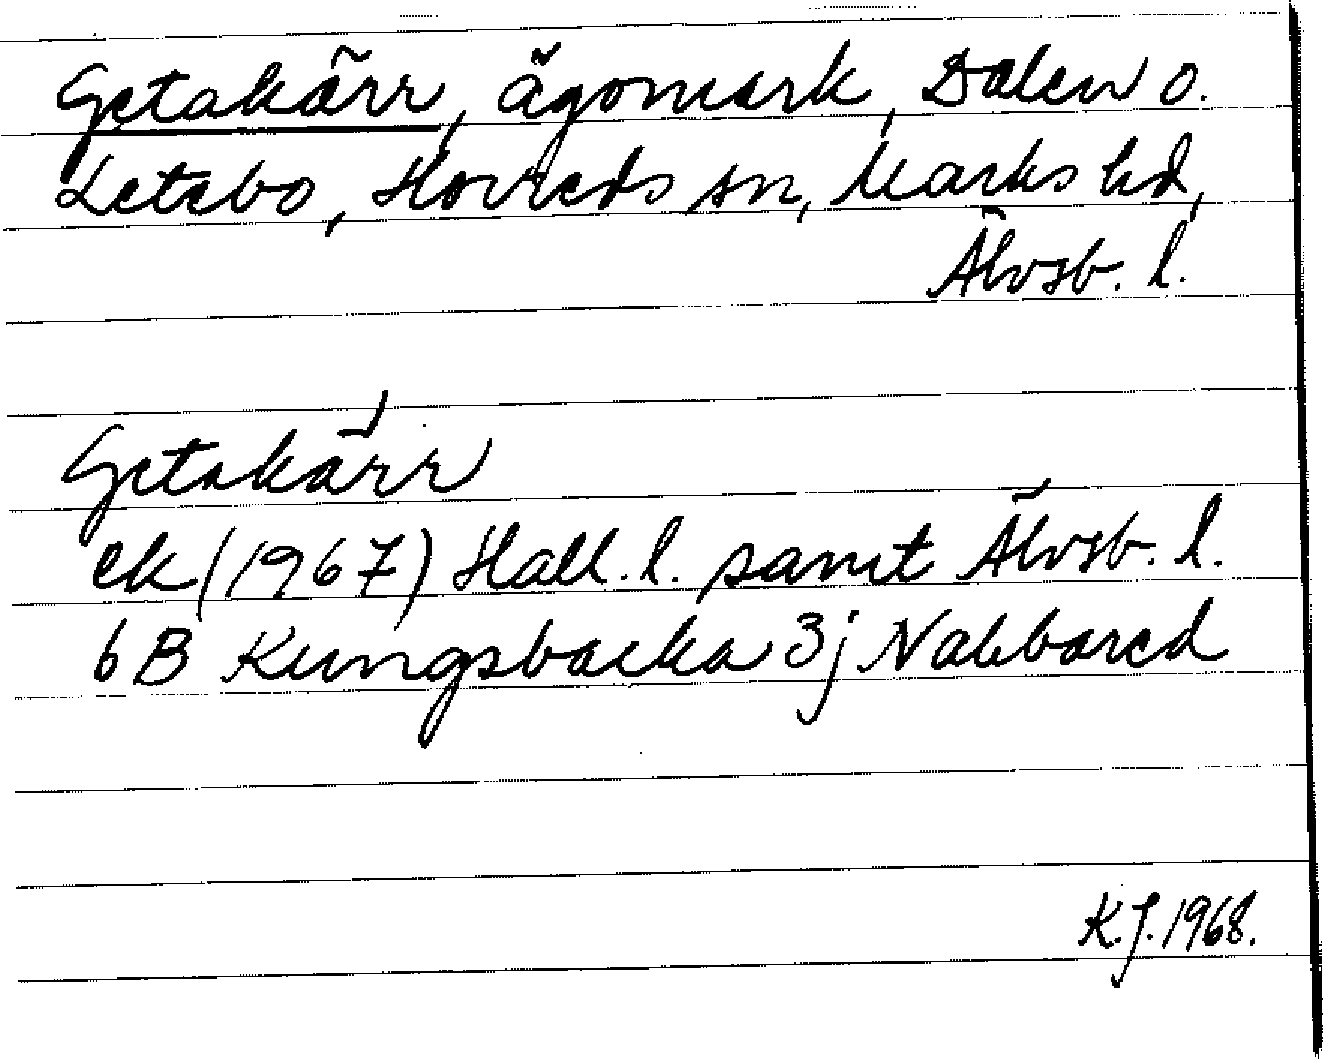 Getakärr, ägomark, Dalen o.
Letebo, Horreds sn, Marks hd,
Älvsb. l.
Getakärr
ek (1967) Hall. l. samt Älvsb. l.
6B Kungsbacka 3j Nabbared
K.J. 1968.